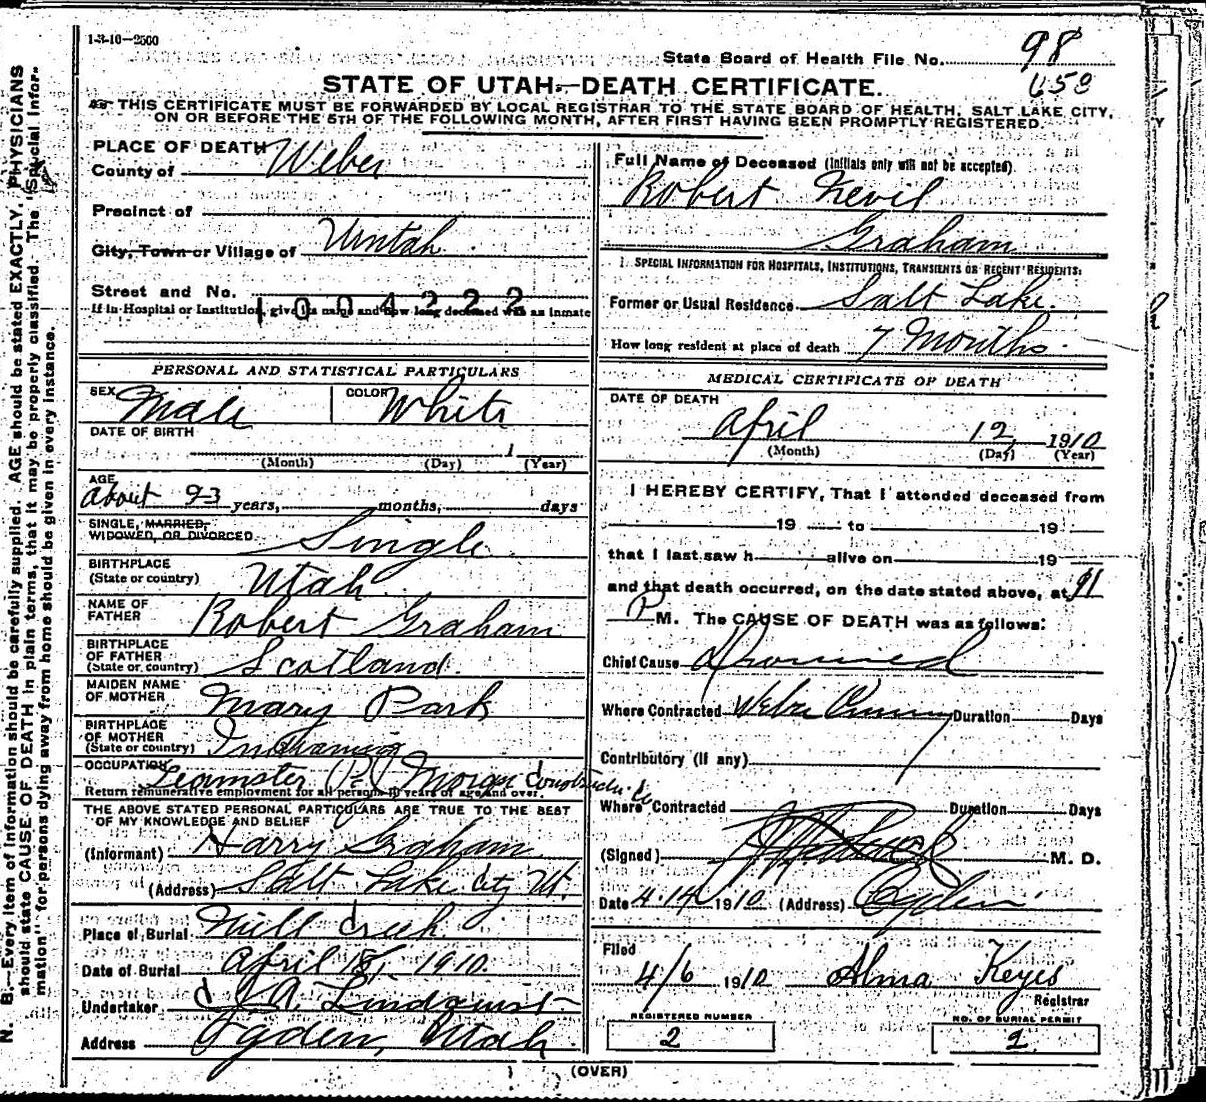 1-3-10—2500
State Board of Health File No. 98
658
STATE OF UTAH—DEATH CERTIFICATE.
THIS CERTIFICATE MUST BE FORWARDED BY LOCAL REGISTRAR TO THE STATE BOARD OF HEALTH, SALT LAKE CITY,
ON OR BEFORE THE 5TH OF THE FOLLOWING MONTH, AFTER FIRST HAVING BEEN PROMPTLY REGISTERED.
PLACE OF DEATH
County of Weber
Precinct of
City, Town or Village of Uintah
Street and No.
1004222
If in Hospital or Institution, give its name and how long deceased was an inmate
PERSONAL AND STATISTICAL PARTICULARS
SEX Male COLOR White
DATE OF BIRTH
1
(Month) (Day) (Year)
AGE
about 23 years, months, days
SINGLE, MARRIED,
WIDOWED, OR DIVORCED Single
BIRTHPLACE
(State or country) Utah
NAME OF
FATHER Robert Graham
BIRTHPLACE
OF FATHER
(State or country) Scotland
MAIDEN NAME
OF MOTHER Mary Park
BIRTHPLACE
OF MOTHER
(State or country)
OCCUPATION Teamster Construction
Return remunerative employment for all persons 10 years of age and over.
THE ABOVE STATED PERSONAL PARTICULARS ARE TRUE TO THE BEST
OF MY KNOWLEDGE AND BELIEF
(Informant) Harry Graham
(Address) Salt Lake City Ut.
Place of Burial Mill Creek
Date of Burial April 1910.
Undertaker Lindquist
Address Ogden, Utah
Full Name of Deceased (Initials only will not be accepted)
Robert Nevil
Graham
SPECIAL INFORMATION FOR HOSPITALS, INSTITUTIONS, TRANSIENTS OR RECENT RESIDENTS:
Former or Usual Residence Salt Lake.
How long resident at place of death 7 Months.
MEDICAL CERTIFICATE OF DEATH
DATE OF DEATH
April 12, 1910
(Month) (Day) (Year)
I HEREBY CERTIFY, That I attended deceased from
19 to 19
that I last saw h alive on 19
and that death occurred, on the date stated above, at
P M. The CAUSE OF DEATH was as follows:
Chief Cause Drowned
Where Contracted Weber Duration Days
Contributory (if any)
Where Contracted Duration Days
(Signed) M. D.
Date 4-14 1910 (Address) Ogden
Filed
4/6 1910 Alma Keyes
Registrar
REGISTERED NUMBER
2
NO. OF BURIAL PERMIT
2
(OVER)
N. B.—Every item of information should be carefully supplied. AGE should be stated EXACTLY. PHYSICIANS
should state CAUSE OF DEATH in plain terms, that it may be properly classified. The "Special Infor-
mation" for persons dying away from home should be given in every instance.